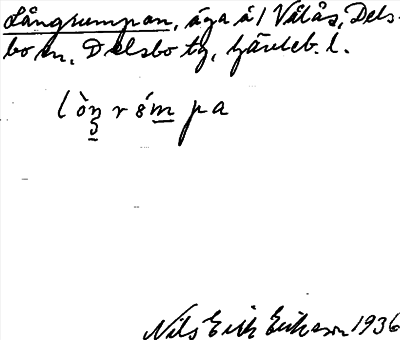 Långrumpan, äga å / Välås, Dels-
bo sn, Delsbo tg, Gävleb. l.
lòŋrómpa
Nils Erik Eriksson 1936